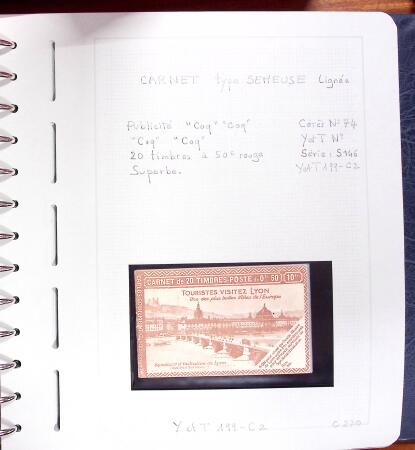 CARNET type SEMEUSE Lignée
Publicité "Coq" "Coq"
"Coq" "Coq"
20 timbres à 50c rouge
Superbe.
Cérès N° 74
Y et T N°
Série: S146
Y et T 199-C2
CARNET DE 20 TIMBRES-POSTE à 0f.50 10f
TOURISTES VISITEZ LYON
Une des plus belles Villes de l'Europe
Syndicat d'Initiative de Lyon
Y et T 199-C2
C 220